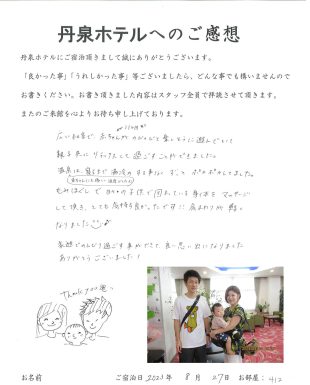 丹泉ホテルへのご感想
丹泉ホテルにご宿泊頂きまして誠にありがとうございます。
「良かった事」「うれしかった事」等ございましたら、どんな事でも構いませんので
お書きください。お書き頂きました内容はスタッフ全員で拝読させて頂きます。
またのご来館を心よりお待ち申し上げております。
広いお部屋で、赤ちゃんが のびのびと楽しそうに遊んでいて
親子共にリラックスして過ごすことができました。
温泉は、寝るまで湯冷めする事なく、ずっとポカポカしてました。
もみほぐしで日々の子供で
して頂き、とても気持ち良かったです
なりました
家族でのんびり過ごす事ができて良い思い出になりました
ありがとうございました!
Thank you
お名前 ご宿泊日 2023 年 8 月 27日 お部屋: 412